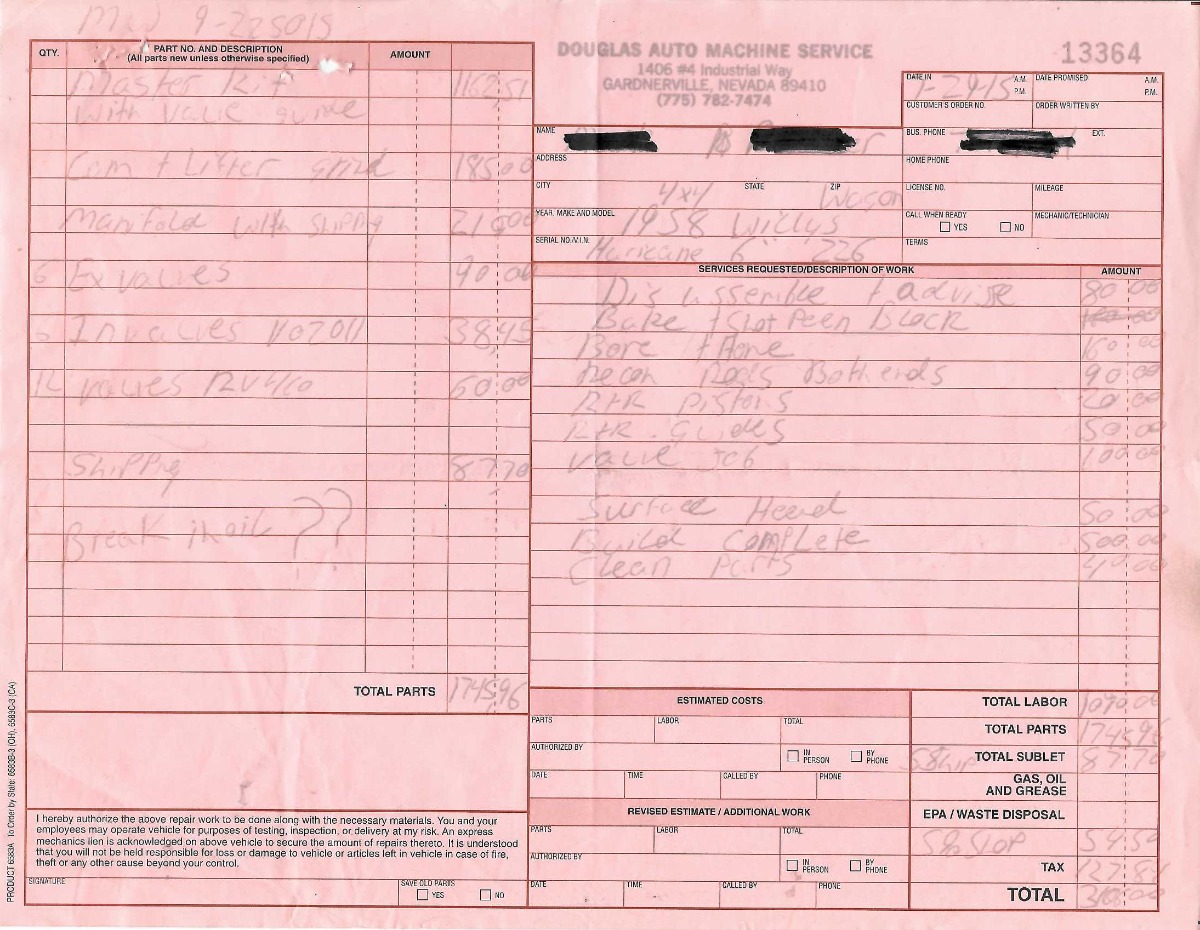 QTY. PART NO. AND DESCRIPTION AMOUNT
(All parts new unless otherwise specified)
Master Kit 1162,51
with valve guide
Cam + Lifter grind 185.00
Manifold with Shipping
6 Ex valves 90.00
6 In valves V02011 38,45
12 valves RV410 60.00
Shipping 87.70
Break in oil ??
TOTAL PARTS 1745,96
DOUGLAS AUTO MACHINE SERVICE
1406 #4 Industrial Way
GARDNERVILLE, NEVADA 89410
(775) 782-7474
13364
DATE IN 7-29-15 A.M. P.M. DATE PROMISED A.M. P.M.
CUSTOMER'S ORDER NO. ORDER WRITTEN BY
NAME BUS. PHONE EXT.
ADDRESS HOME PHONE
CITY 4x4 STATE ZIP Wagon LICENSE NO. MILEAGE
YEAR, MAKE AND MODEL 1958 Willys CALL WHEN READY YES NO MECHANIC/TECHNICIAN
SERIAL NO./V.I.N. Huricane 6 226 TERMS
SERVICES REQUESTED/DESCRIPTION OF WORK AMOUNT
Dis assemble + advise 80 00
Bake + Shot Peen Block
Bore + Hone 160 00
Recon Rods Both ends 90 00
R+R Pistons 20 00
R+R. Guides 50 00
Valve Job 100 00
Surface Head 50 00
Build Complete 500.00
Clean Parts 40 00
ESTIMATED COSTS
PARTS LABOR TOTAL
AUTHORIZED BY IN PERSON BY PHONE
DATE TIME CALLED BY PHONE
REVISED ESTIMATE / ADDITIONAL WORK
PARTS LABOR TOTAL
AUTHORIZED BY IN PERSON BY PHONE
DATE TIME CALLED BY PHONE
TOTAL LABOR 1090.00
TOTAL PARTS 1745.96
TOTAL SUBLET 87.70
GAS, OIL AND GREASE
EPA / WASTE DISPOSAL
54.50
TAX 127.84
TOTAL
I hereby authorize the above repair work to be done along with the necessary materials. You and your
employees may operate vehicle for purposes of testing, inspection, or delivery at my risk. An express
mechanics lien is acknowledged on above vehicle to secure the amount of repairs thereto. It is understood
that you will not be held responsible for loss or damage to vehicle or articles left in vehicle in case of fire,
theft or any other cause beyond your control.
SIGNATURE SAVE OLD PARTS YES NO
PRODUCT 6583A To Order by State: 6583B-3 (OH), 6583C-3 (CA)